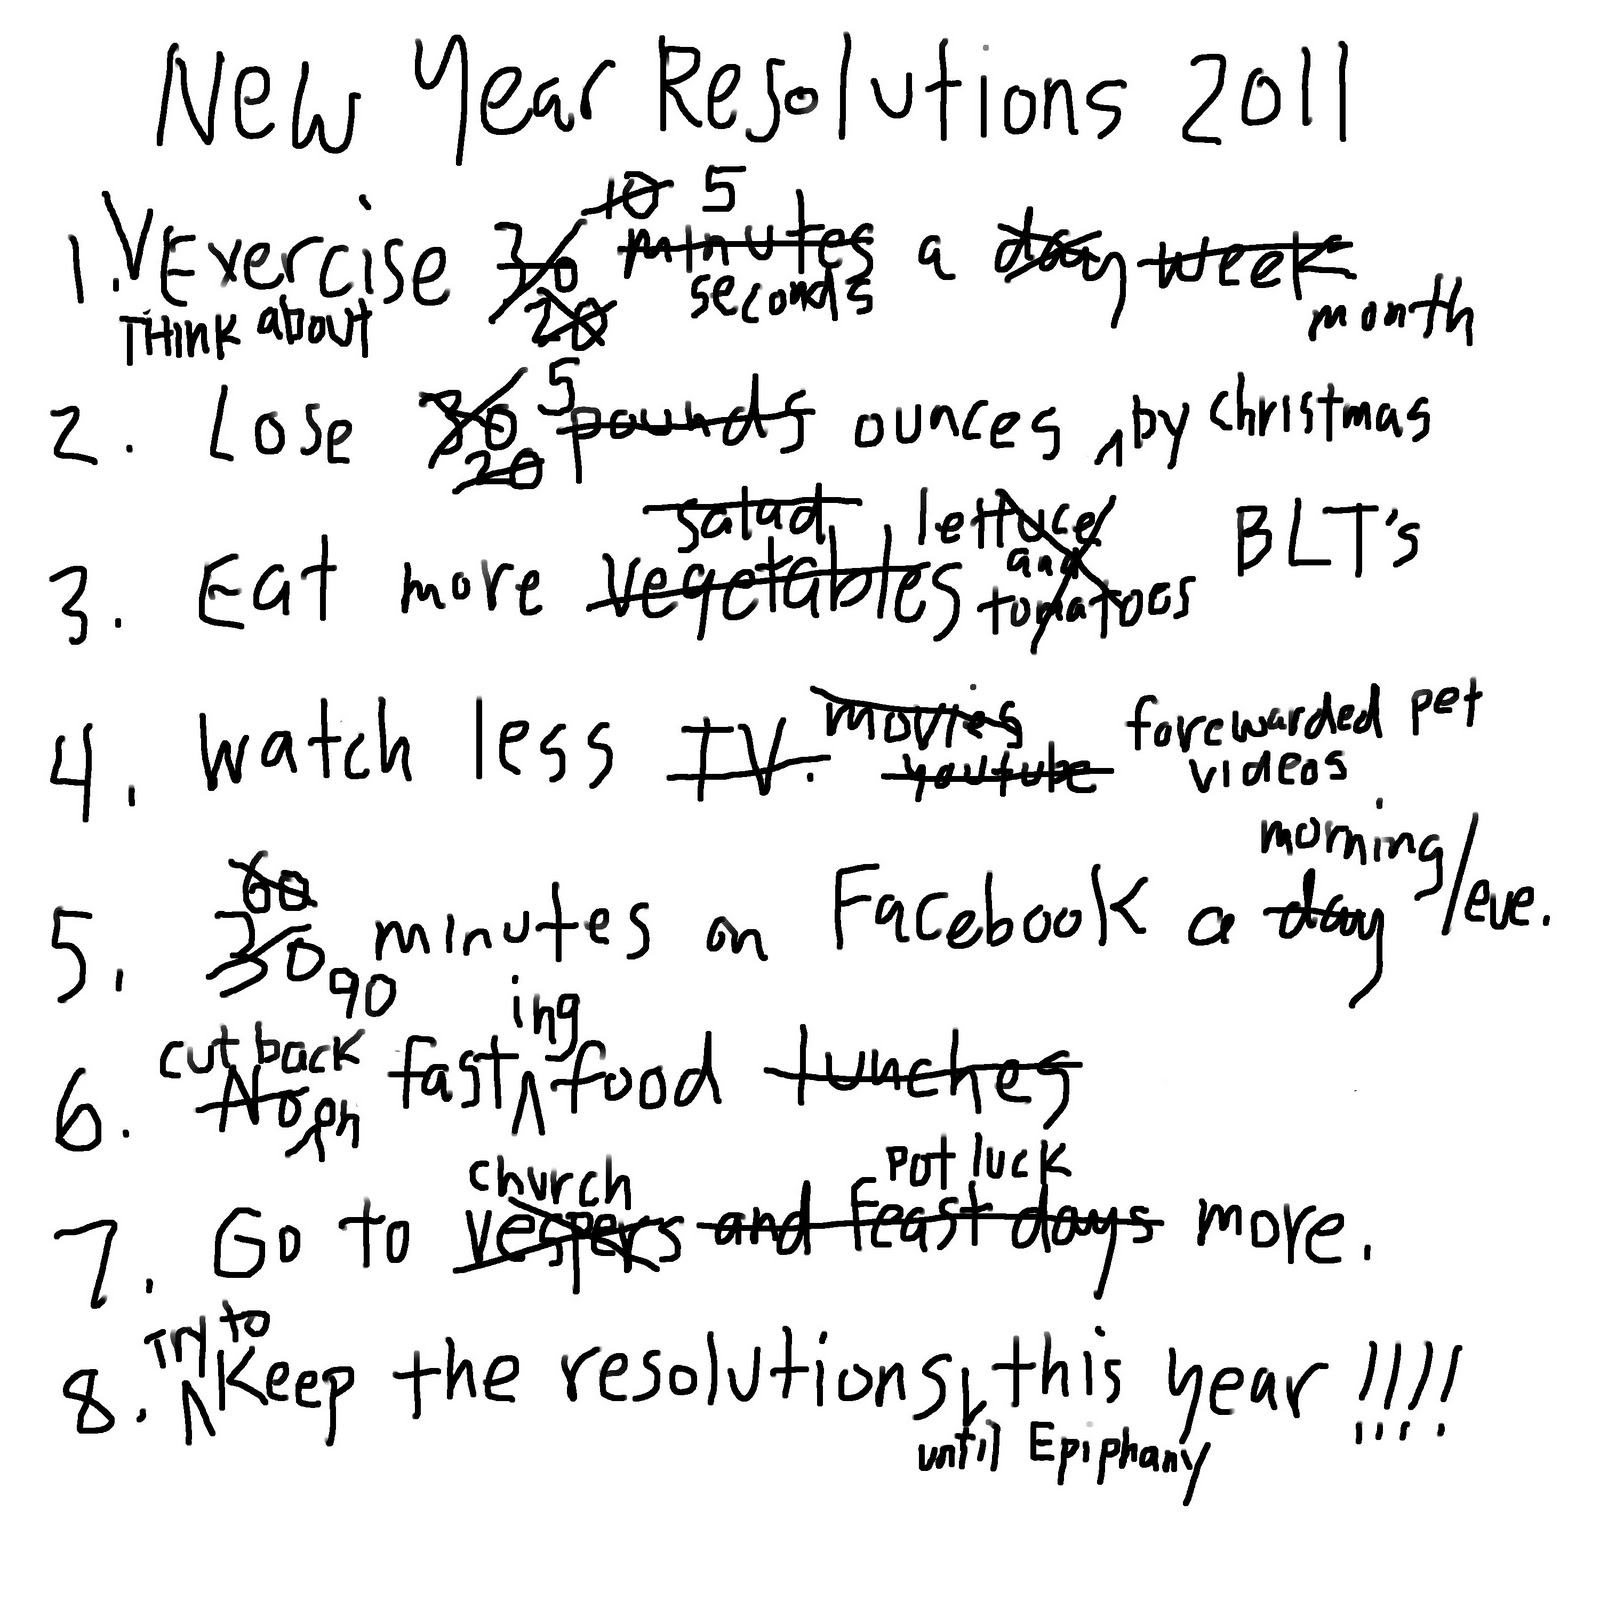 New Year Resolutions 2011
10 5
1. V Exercise 30 minutes a day week
Think about 20 seconds month
2. Lose 30 5 pounds ounces ^ by christmas
20
salad lettuce and tomatoes BLT's
3. Eat more vegetables
4. Watch less TV. movies youtube forewarded pet videos
60 morning/eve.
5. 30 minutes on Facebook a day
90
cut back ing
6. No on fast ^ food lunches
church pot luck
7. Go to vespers and feast days more.
Try to
8. ^ Keep the resolutions, this year !!!!
until Epiphany